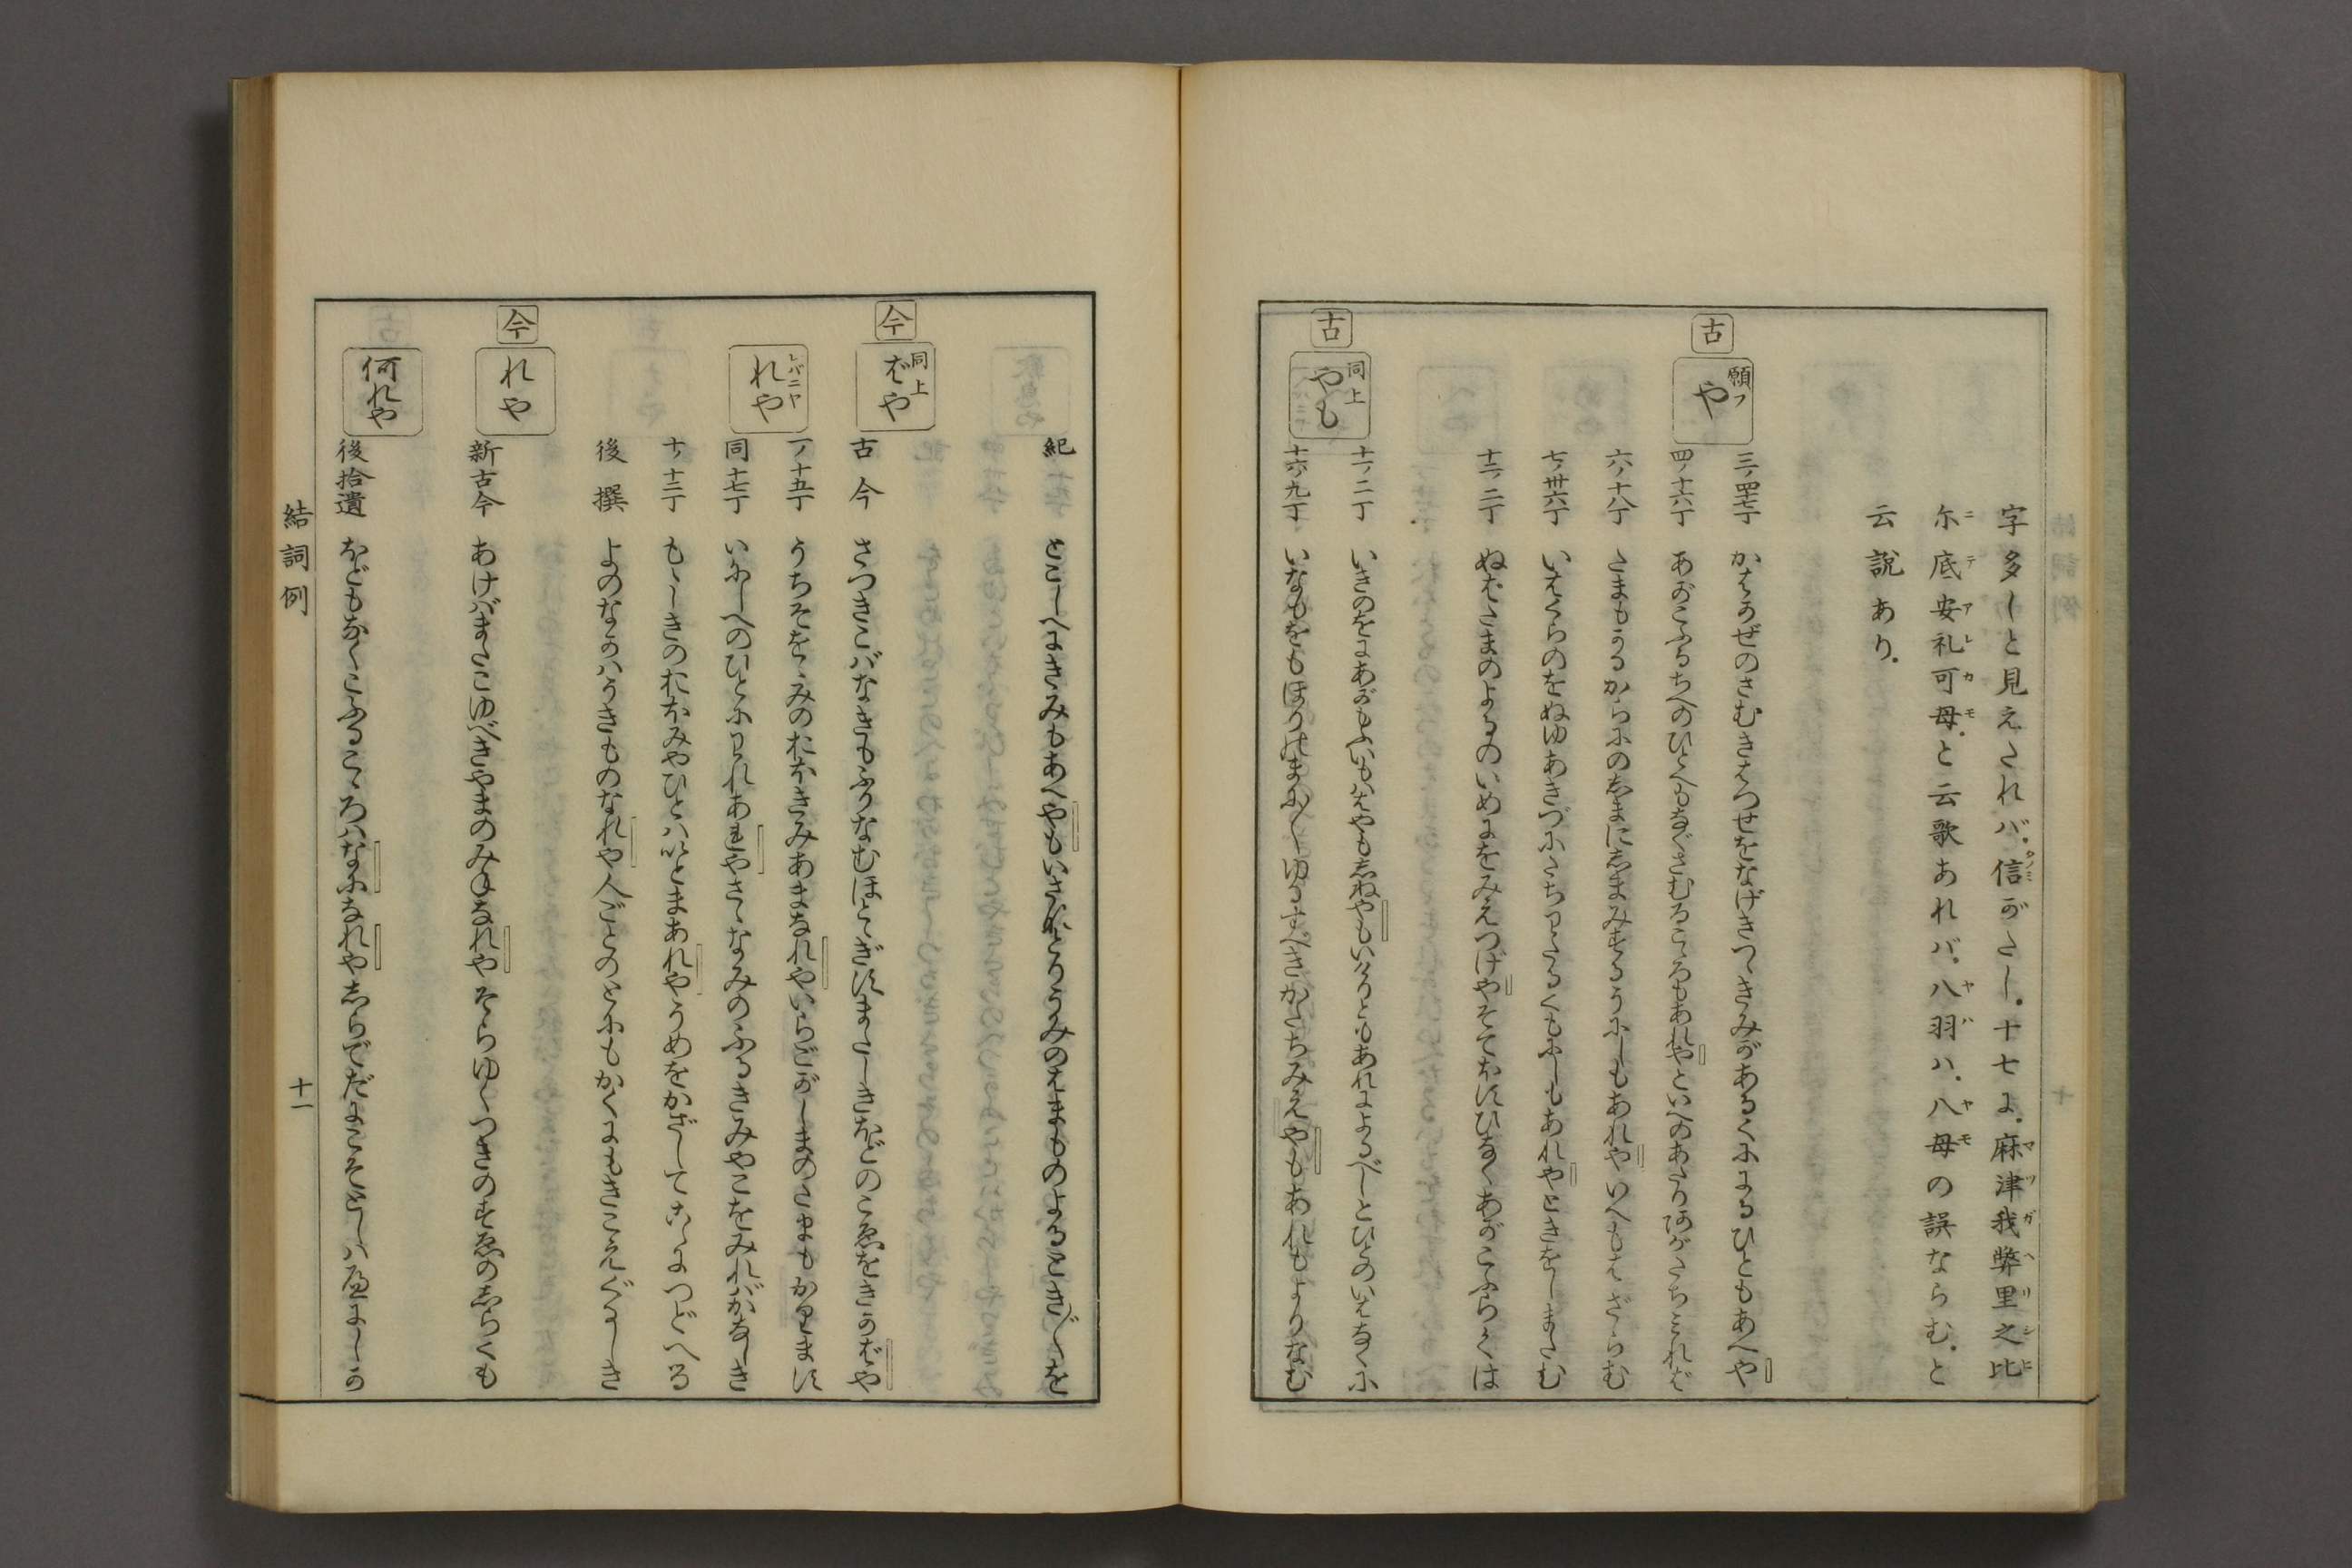 字多しと見えたれバ。信がたし。十七に。麻津我弊里之比
尓底安礼可母。と云歌あれバ。八羽ハ。八母の誤ならむ。と
云説あり。
古
願フ
や
三ノ四十七丁 かはかぜのさむきはつせをなげきつゝきみがあるくににるひともあへや
四ノ十六丁 あがこふるちへのひとへもなぐさむるこゝろもあれやといへのあたりわがたちみれば
六ノ十八丁 たまもかるからにのしまにしまみするうにしもあれやいへもはざらむ
七ノ卅六丁 いはくらのをぬゆあきづにたちわたるくもにしもあれやときをしまたむ
十二ノ二丁 ぬばたまのよるのいめにをみえつげやそでほすひなくあがこふらくは
古
同上
やも
十一ノ二丁 いきのをにあがもふいもはやもしねやもいけりともあれによるべしとひとのいはなくに
十六ノ九丁 いなもをもほりのまにまにゆるすべきかたちみえやもあれもよりなむ
紀 とこしへにきみもあへやもいさなとりうみのはまものよるときときを
今
同上
ばや
古今 さつきこバなきもふりなむほとゝぎすまたしきほどのこゑをきかばや
レバニヤ
れや
一ノ十五丁 うちそををみのおほきみあまなれやいらごがしまのたまもかります
同十七丁 いにしへのひとにわれあれやさゝなみのふるきみやこをみれバかなしき
十ノ十二丁 もゝしきのおほみやひとハいとまあれやうめをかざしてこゝにつどへる
後撰 よのなかハうきものなれや人ごとのとにもかくにもきこえぐるしき
今
れや
新古今 あけバまたこゆべきやまのみねなれやそらゆくつきのすゑのしらくも
何れや
後拾遺 ほどもなくこふるこゝろハなになれやしらでだにこそとしハへにしか
結詞例
十一